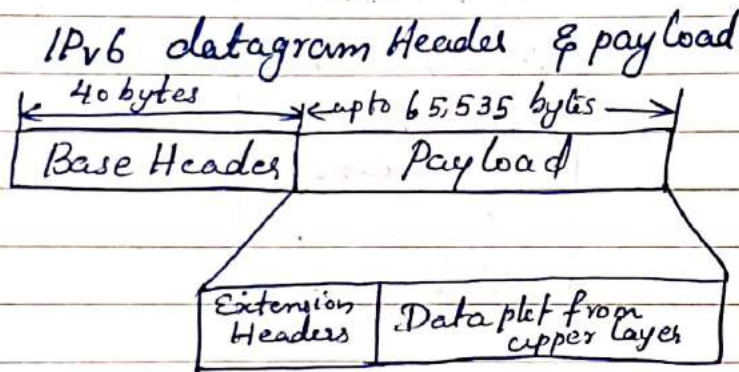 IPv6 datagram Header & payload
40 bytes upto 65,535 bytes
Base Header Payload
Extension Headers
Data pkt from upper layer